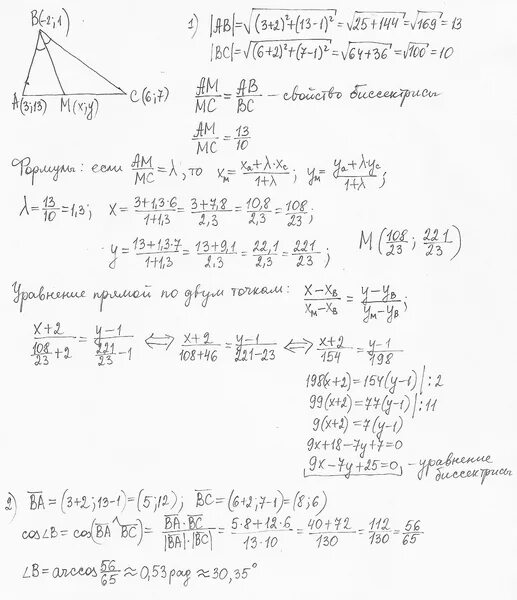 B(-2;1)
A(3;13) M(x;y) C(6;7)
1) |AB|=√((3+2)²+(13-1)²)=√(25+144)=√169=13
|BC|=√((6+2)²+(7-1)²)=√(64+36)=√100=10
AM/MC=AB/BC - свойство биссектрисы
AM/MC=13/10
Формулы: если AM/MC=λ, то xм=(xa+λ·xc)/(1+λ); yм=(ya+λyc)/(1+λ);
λ=13/10=1,3; x=(3+1,3·6)/(1+1,3)=(3+7,8)/2,3=10,8/2,3=108/23;
y=(13+1,3·7)/(1+1,3)=(13+9,1)/2.3=22,1/2,3=221/23; M(108/23; 221/23)
Уравнение прямой по двум точкам: (x-xв)/(xм-xв)=(y-yв)/(yм-yв);
(x+2)/(108/23+2)=(y-1)/(221/23-1) ⟺ (x+2)/(108+46)=(y-1)/(221-23) ⟺ (x+2)/154=(y-1)/198
198(x+2)=154(y-1)|:2
99(x+2)=77(y-1)|:11
9(x+2)=7(y-1)
9x+18-7y+7=0
9x-7y+25=0 - уравнение биссектрисы
2) BA=(3+2;13-1)=(5;12); BC=(6+2;7-1)=(8;6)
cos∠B=cos(BA^BC)=(BA·BC)/(|BA|·|BC|)=(5·8+12·6)/(13·10)=(40+72)/130=112/130=56/65
∠B=arccos56/65≈0,53рад≈30,35°